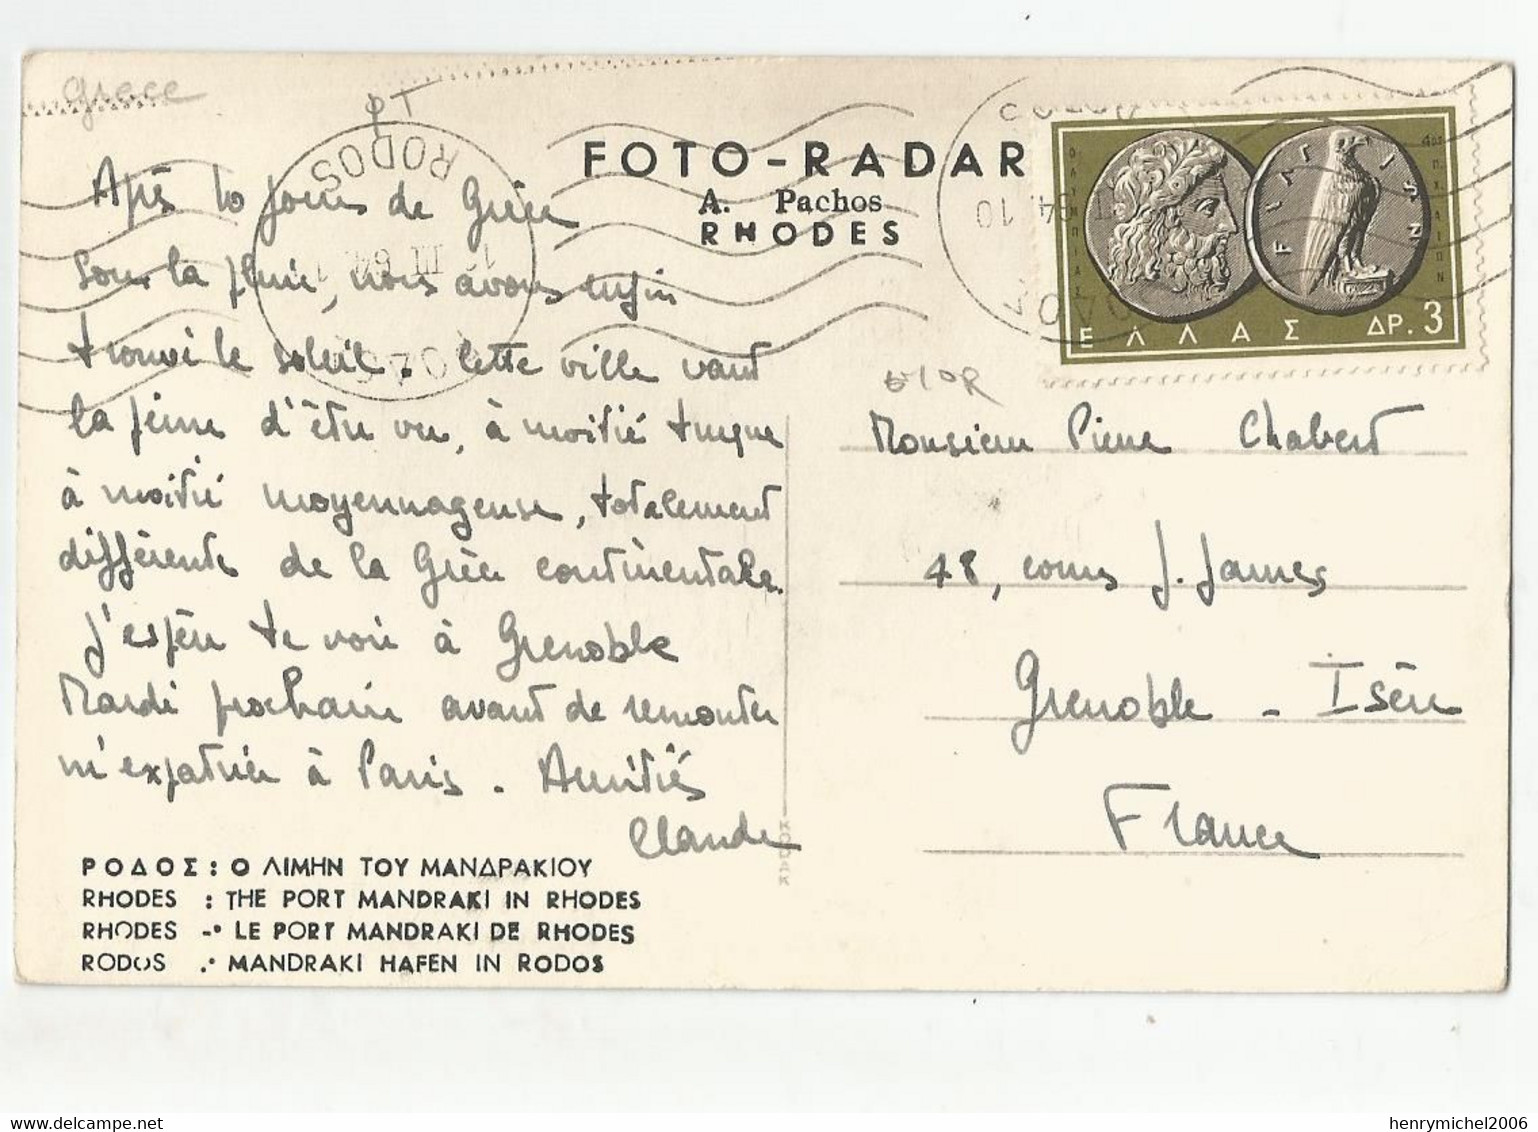 Grece
Après 10 jours de Grèce
sous la pluie, nous avons enfin
trouvé le soleil. Cette ville vaut
la peine d'être vue, à moitié turque
à moitié moyennageuse, totalement
différente de la Grèce continentale.
J'espère te voir à Grenoble
Mardi prochain avant de remonter
m'expatrier à Paris. Amitiés
Claude
ΡΟΔΟΣ: Ο ΛΙΜΗΝ ΤΟΥ ΜΑΝΔΡΑΚΙΟΥ
RHODES : THE PORT MANDRAKI IN RHODES
RHODES -• LE PORT MANDRAKI DE RHODES
RODOS .• MANDRAKI HAFEN IN RODOS
FOTO-RADAR
A. Pachos
RHODES
RODOS
III 64
64.10
ΕΛΛΑΣ ΔΡ. 3
Monsieur Pierre Chabert
48, cours J. Jaures
Grenoble - Isère
France
KODAK
henrymichel2006